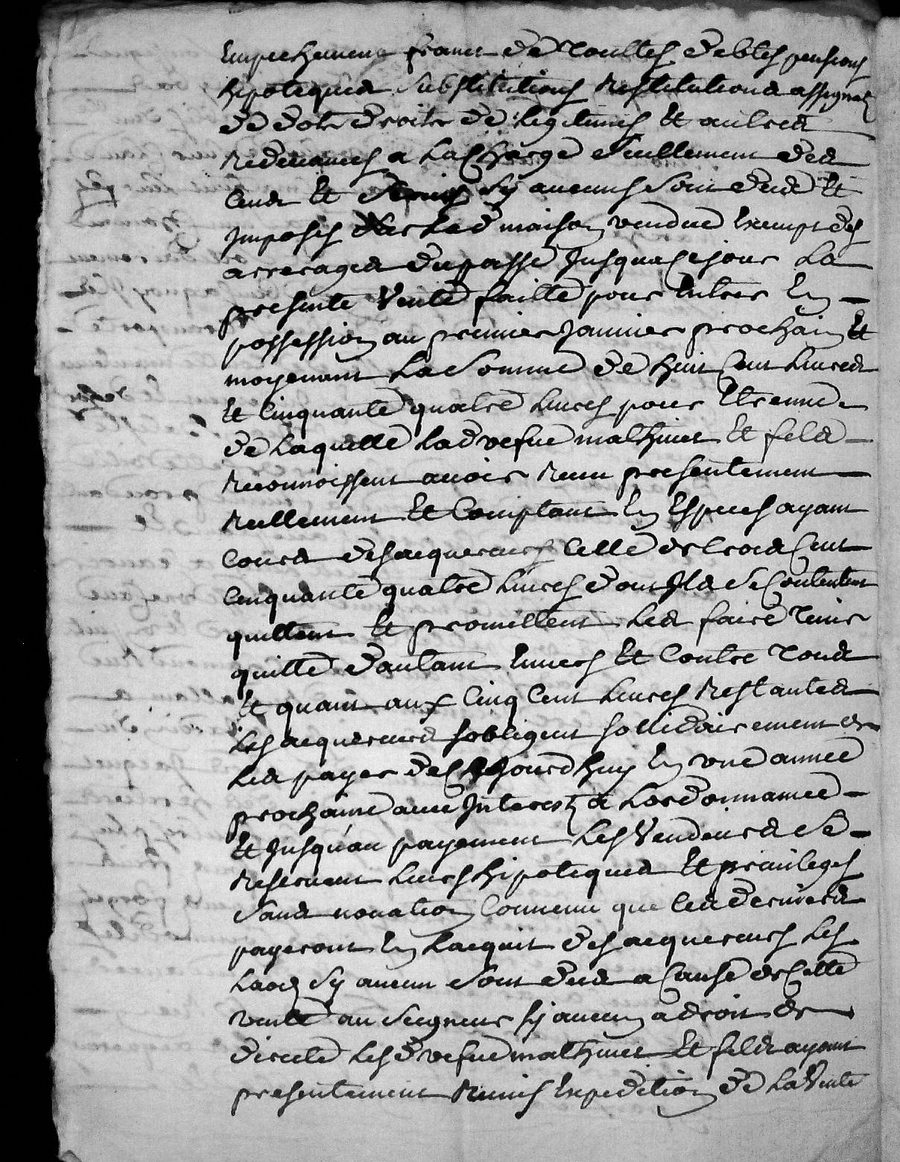 Empechement franct de touttes debtes pensions
hipoteques substitutions restitutions assignat
de dots droits de legitimes Et autres
redevances a la Charge seullement des
Cens Et servis sy aucuns sont deus Et
Imposés sur lad maison vendue Exempt des
arrerages du passé Jusqua Ce jour La
presente vente faitte pour Entrer En
possession au premier Janvier prochain Et
moyenant La Somme de huit Cent livres
Et Cinquante quatre livres pour Etrenne
de Laquelle Lad vefue mathieu Et fils
reconnoissent avoir receu presentement
reellement Et Comptant En Especes ayant
Cours des acquereurs Celle de trois Cent
Cinquante quatre livres dont Ils se Contentent
quittent Et promettent les faire tenir
quitte d'autant Envers Et Contre tous
Et quant aux Cinq Cent livres restantes
Les acquereurs s'obligent sollidairement de
Les payer des aujourdhuy En une année
prochaine avec Interest a Lordonnance
Et Jusqu'au payement Les Vendeurs se
reservent leurs hipoteques Et privileges
sans novation Convenu que Ces derniers
payeront En Lacquit des acquereurs les
Laods sy aucun sont deus a Cause de Cette
vente au seigneur sy aucun a droit de
directe Les d vefue mathieu Et fils ayant
presentement remis Expedition de La Vente